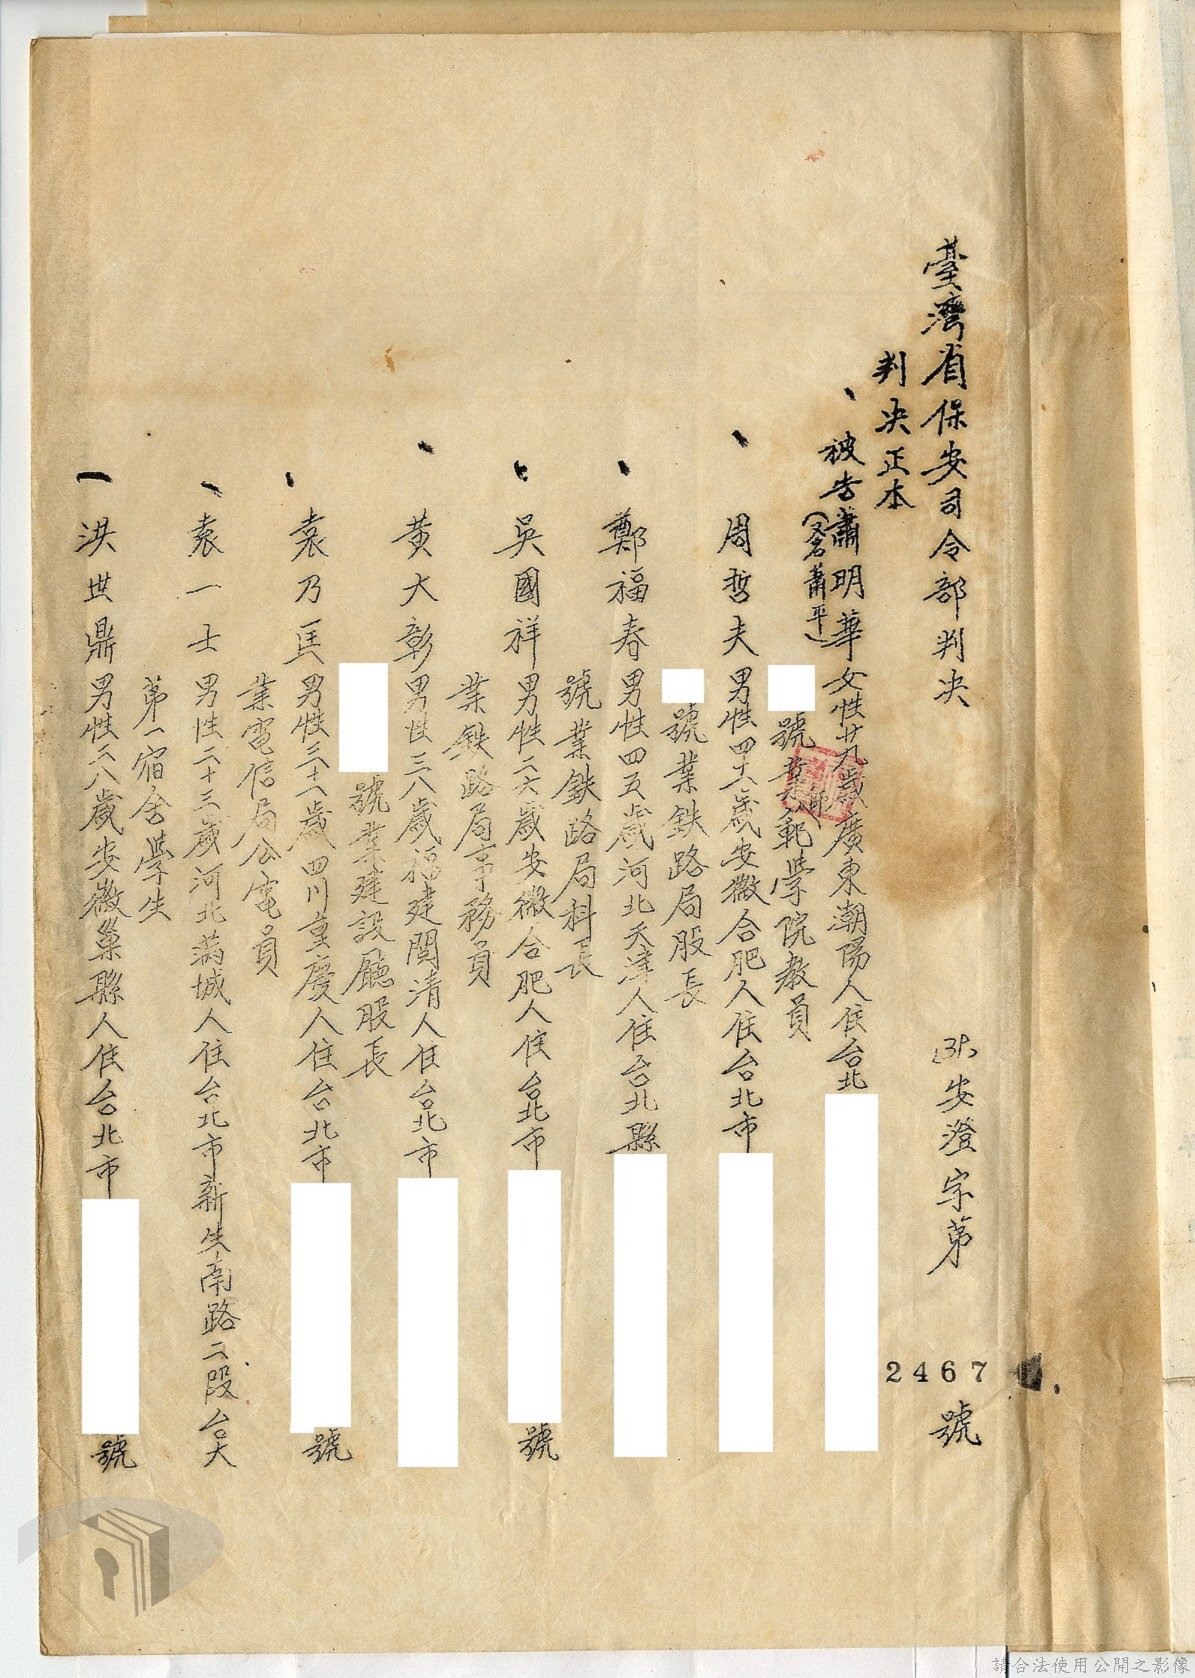 臺灣省保安司令部判決 安澄宗第 2467 號
判决正本
被告蕭明華女性廿九歲廣東潮陽人住台北
(又名蕭平)
號業師範學院教員
周哲夫男性四十六歲安徽合肥人住台北市
號業鉄路局股長
鄭福春男性四五歲河北天津人住台北縣
號業鉄路局科長
吳國祥男性二六歲安徽合肥人住台北市 號
業鉄路局事務員
黃大彰男性三八歲福建閩清人住台北市
號業建設廳股長
袁乃匡男性三十一歲四川重慶人住台北市 號
業電信局公電員
袁一士男性二十三歲河北滿城人住台北市新生南路二段台大
第一宿舍學生
洪世鼎男性二八歲安徽巢縣人住台北市 號
請合法使用公開之影像